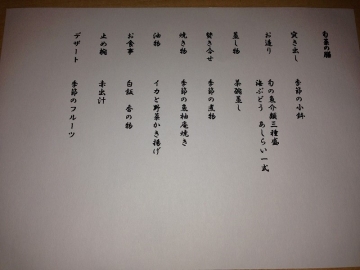 旬菜の膳
突き出し 季節の小鉢
お造り 旬の魚介類三種盛
海ぶどう あしらい一式
蒸し物 茶碗蒸し
焚き合せ 季節の煮物
焼き物 季節の魚柚庵焼き
油物 イカと野菜かき揚げ
お食事 白飯 香の物
止め椀 赤出汁
デザート 季節のフルーツ